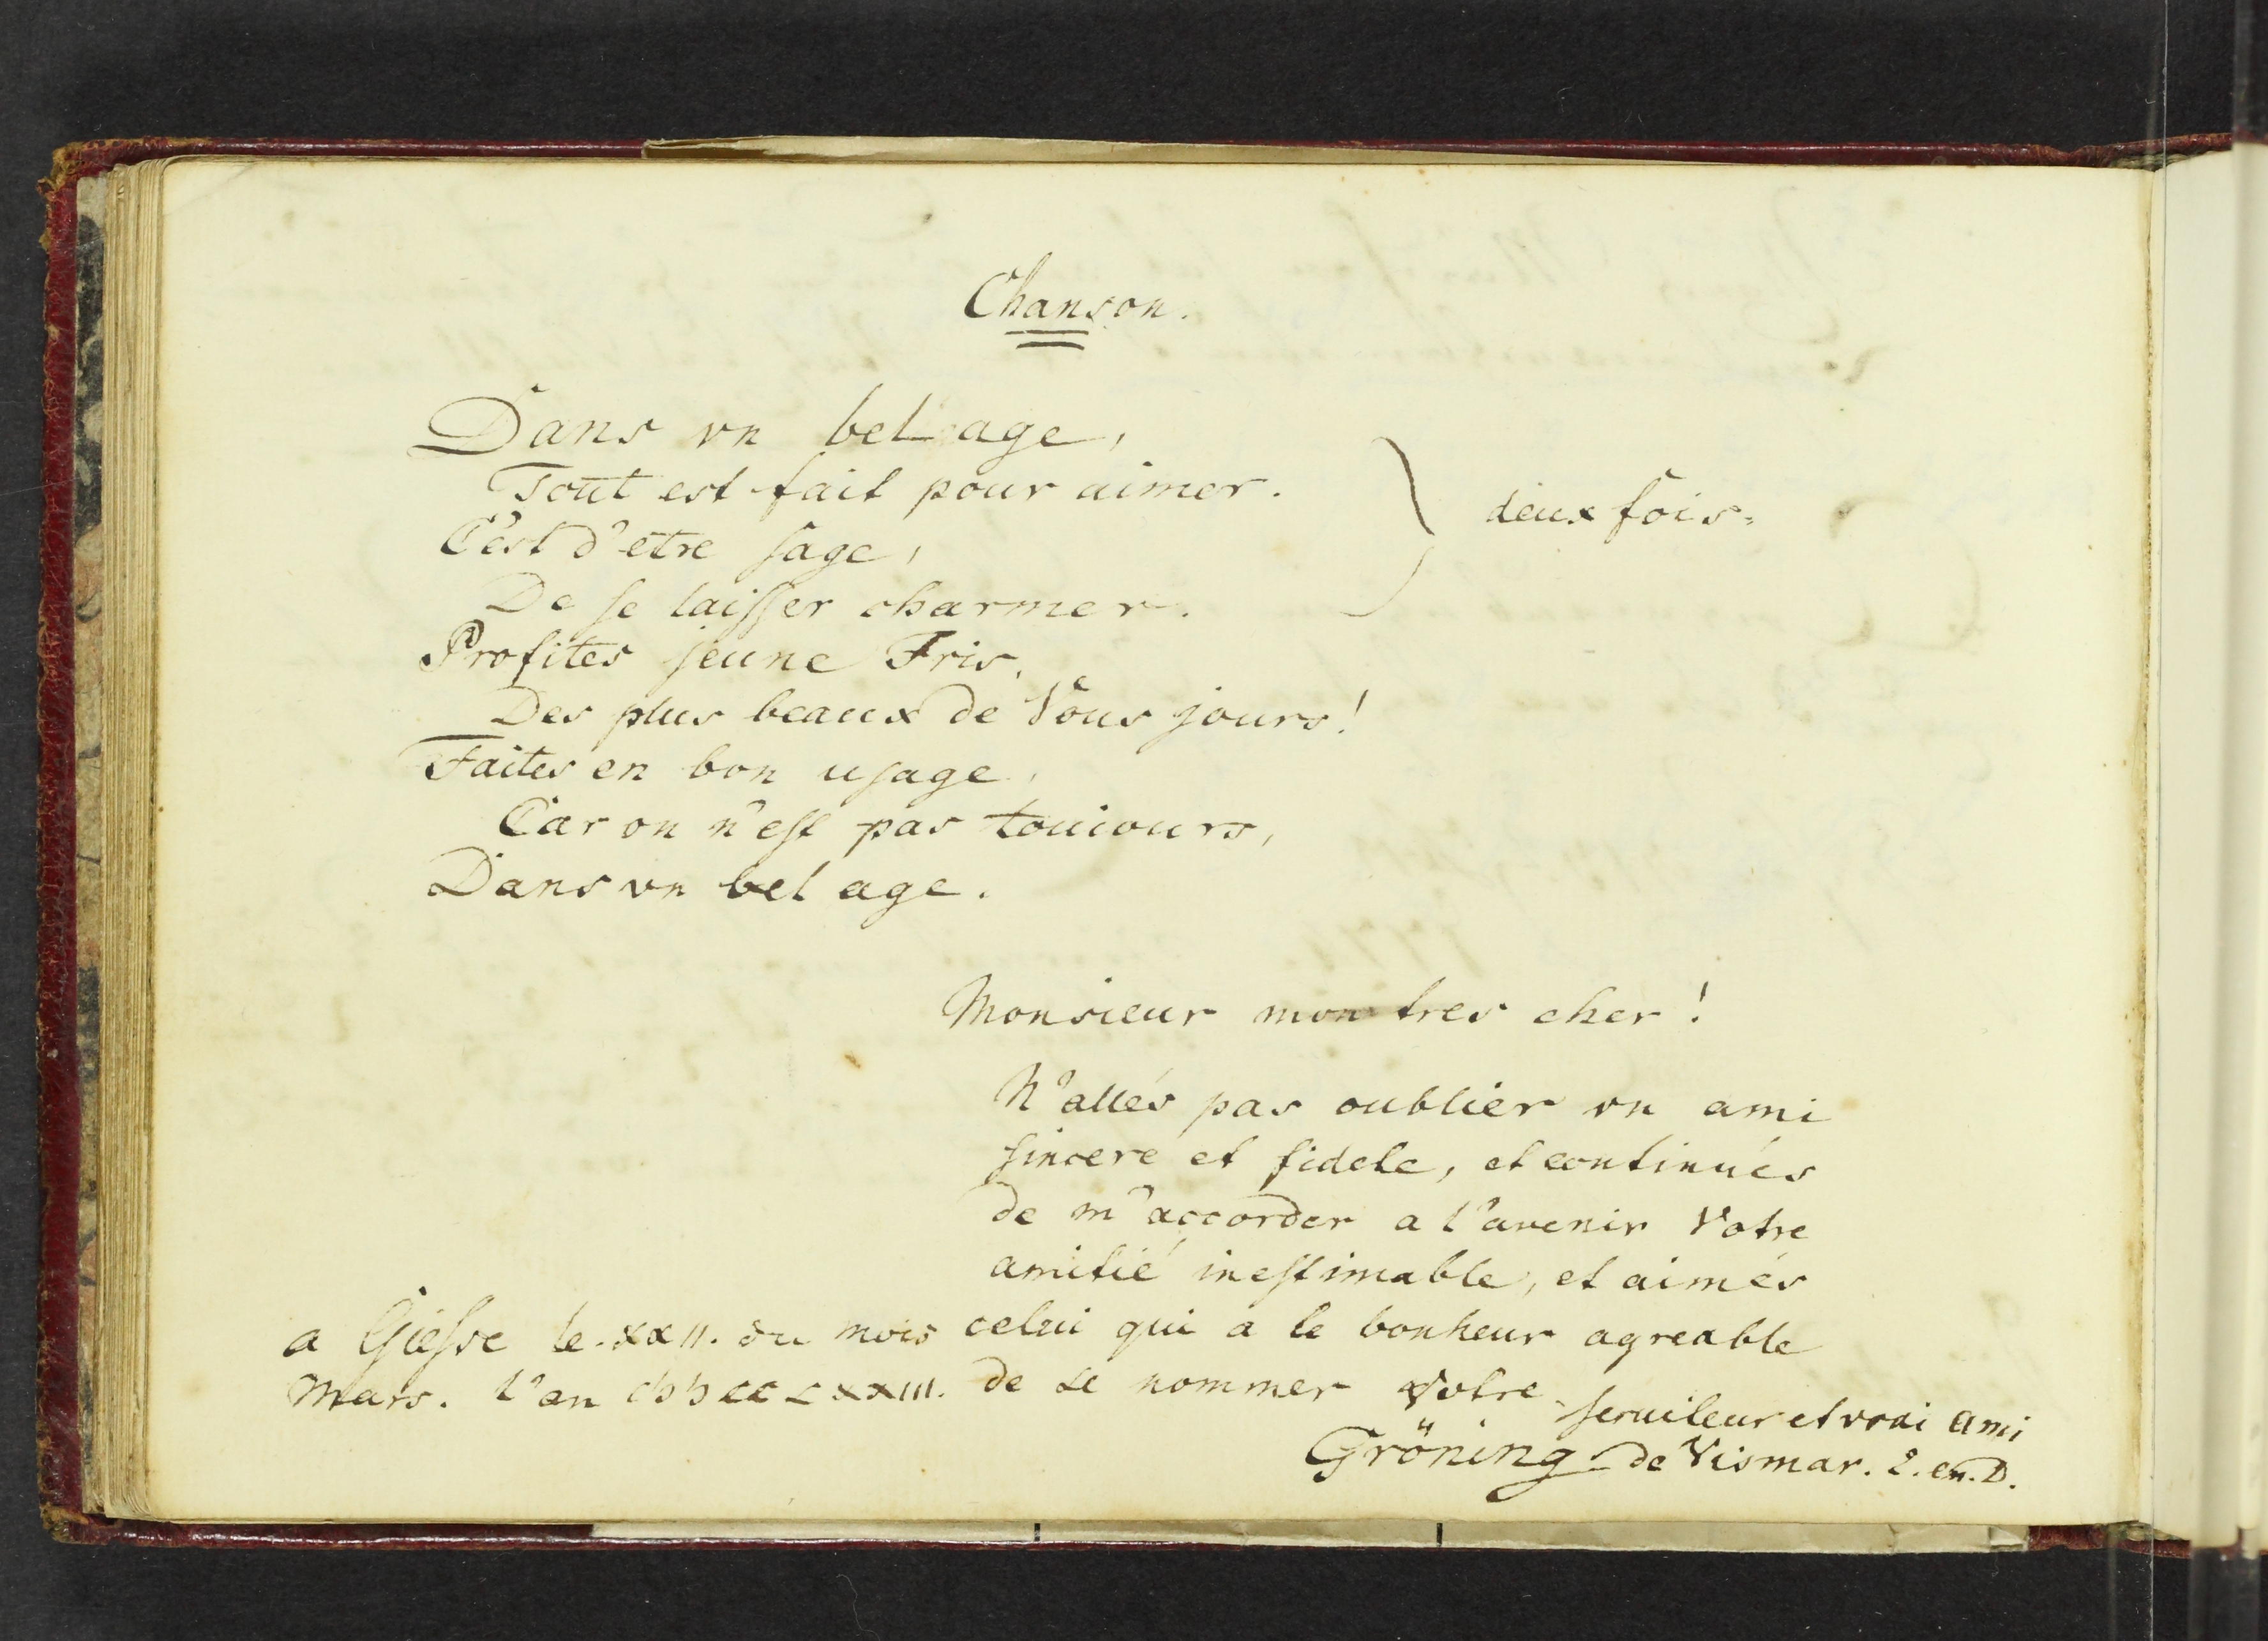 Chanson.
Dans vn bel age,
Tout est fait pour aimer.
C'est d'etre sage,
De se laisser charmer.
deux fois.
Profites jeune Fris,
Des plus beaux de Vous jours!
Faites en bon usage,
Car on n'est pas touiours,
Dans vn bel age.
Monsieur mon tres cher!
N'allés pas oublier vn ami
sincere et fidele, et continués
de m'accorder a l'avenir Votre
amitié inestimable, et aimés
celui qui a le bonheur agreable
de se nommer Votre
seruiteur et vrai ami
Gröning de Vismar. E. en. D.
a Giesse le. XXII. du mois
Mars. l'an CIƆIƆCCLXXIII.